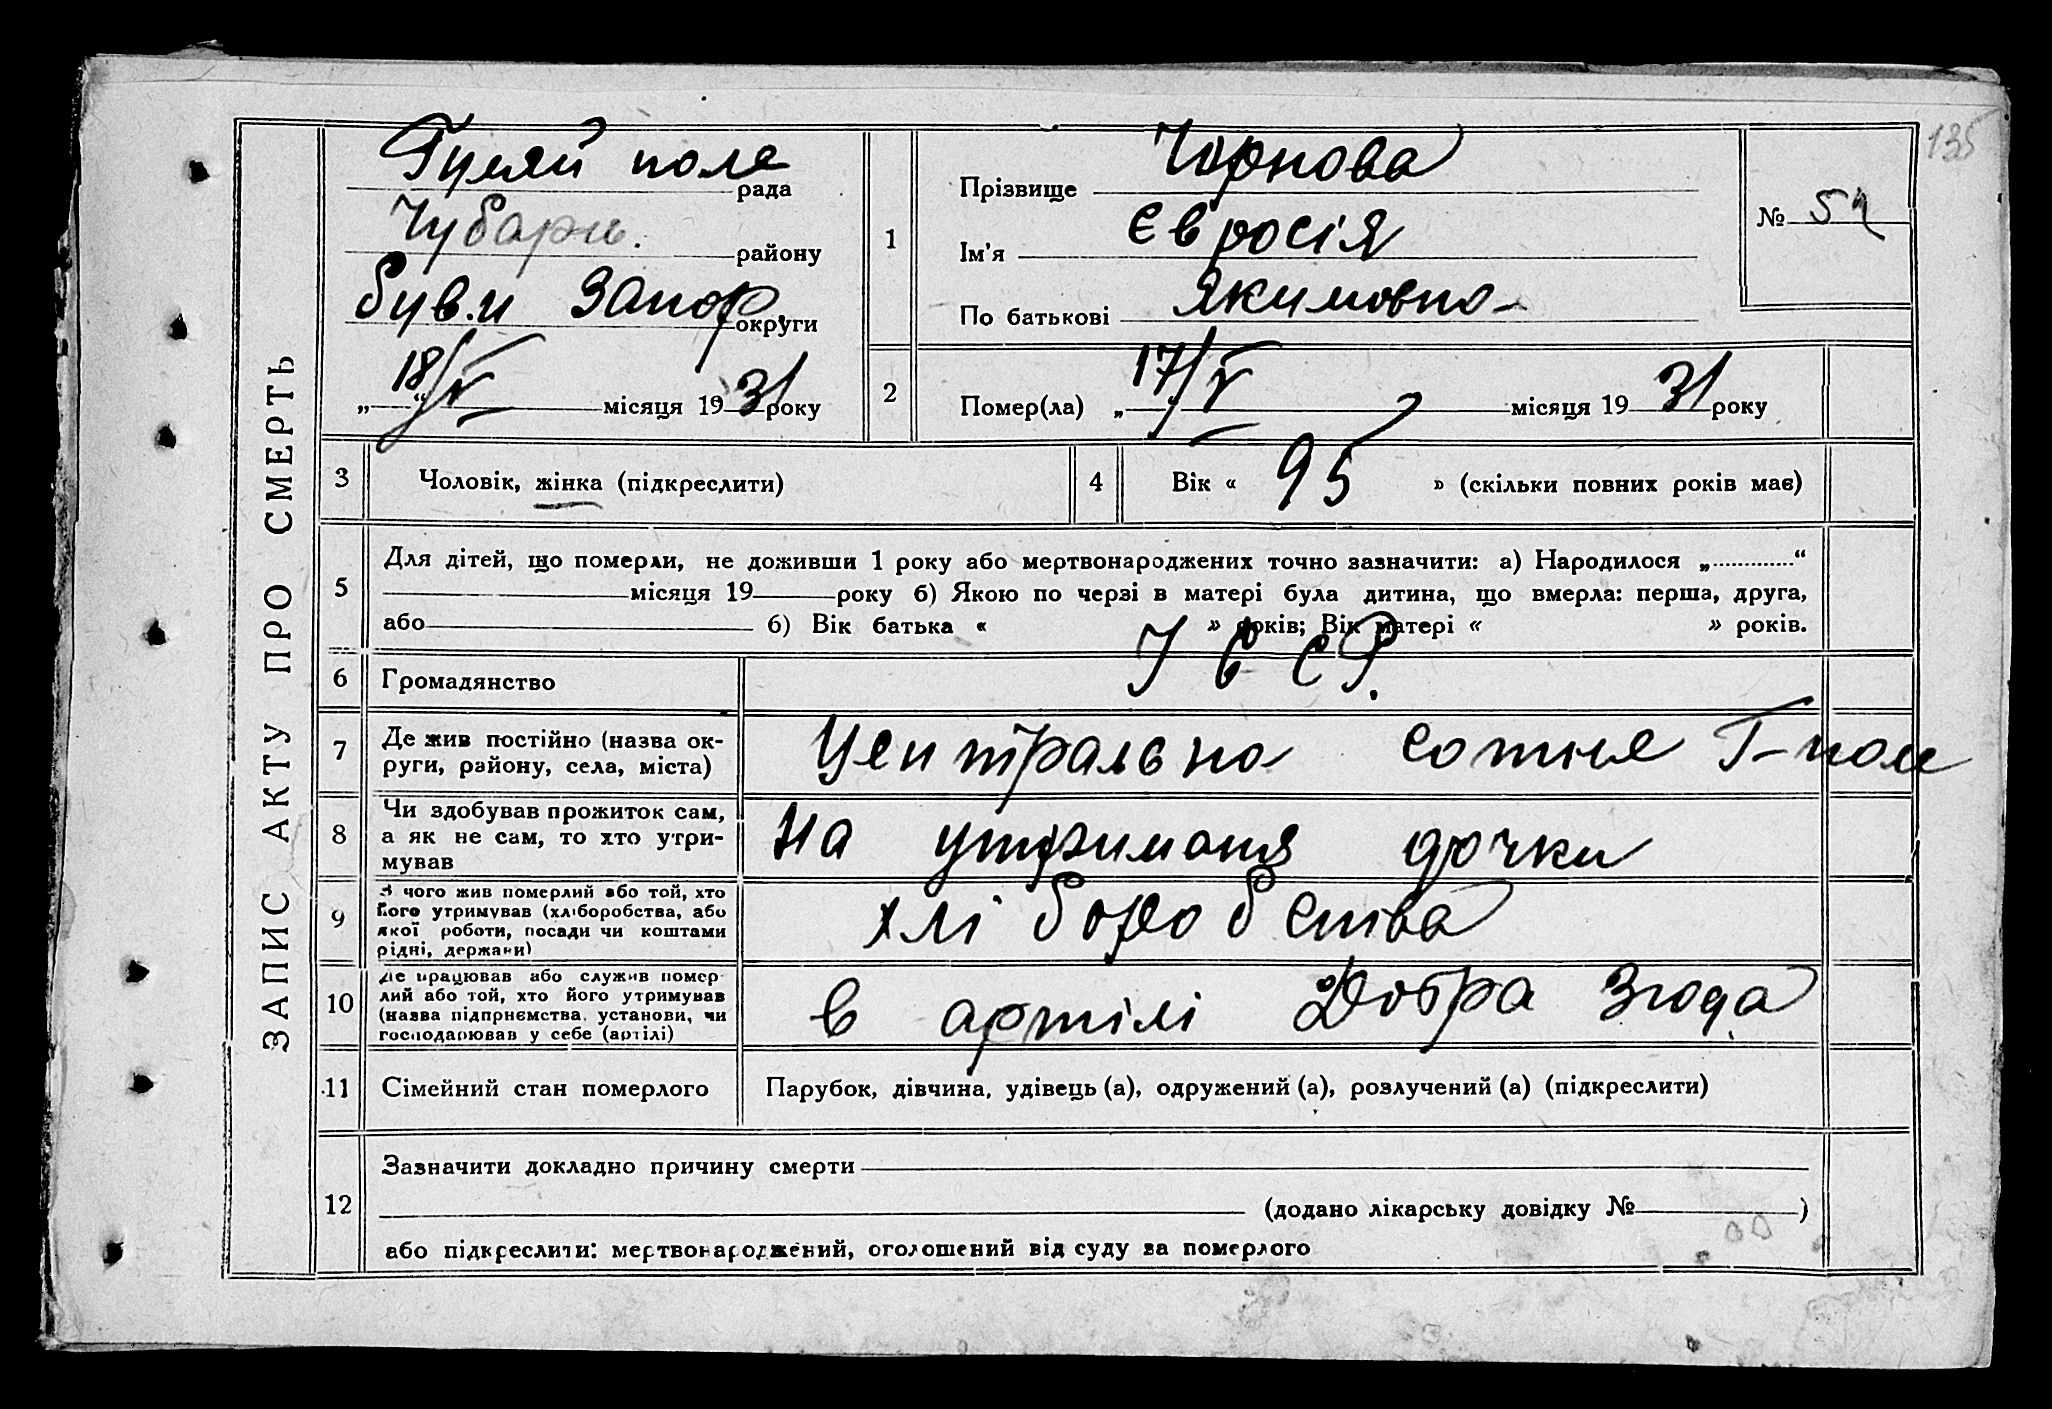 135
ЗАПИС АКТУ ПРО СМЕРТЬ
Гуляй поле рада
Чубарів. району
був.и Запор. округи
„ 18/V “ місяця 1931 року
1
Прізвище Чорнова
Ім'я Євросія
По батькові Якимовна
№ 52
2
Помер(ла) „ 17/V місяця 1931 року
3 Чоловік, жінка (підкреслити)
4 Вік « 95 » (скільки повних років має)
5
Для дітей, що померли, не доживши 1 року або мертвонароджених точно зазначити: а) Народилося „ “
місяця 19 року б) Якою по черзі в матері була дитина, що вмерла: перша, друга,
або б) Вік батька « » років; Вік матері « » років.
6 Громадянство
У С С Р.
7
Де жив постійно (назва ок-
руги, району, села, міста)
Центрально сотня Г-поле
8
Чи здобував прожиток сам,
а як не сам, то хто утри-
мував
на утриманя дочки
9
З чого жив померлий або той, хто
його утримував (хліборобства, або
якої роботи, посади чи коштами
рідні, держави)
хліборобства
10
Де працював або служив помер-
лий або той, хто його утримував
(назва підпрнємства, установи, чи
господарював у себе (артілі)
в артілі Добра Згода
11 Сімейний стан померлого
Парубок, дівчина, удівець (а), одружений (а), розлучений (а) (підкреслити)
12
Зазначити докладно причину смерти
(додано лікарську довідку № )
або підкреслити: мертвонароджений, оголошений від суду за померлого